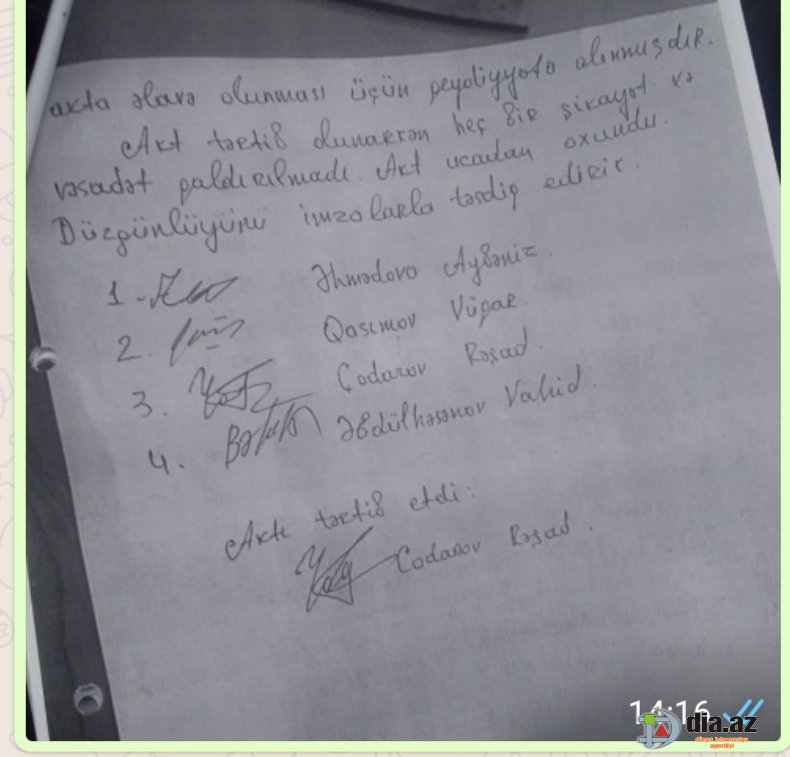 axta əlavə olunması üçün qeydiyyata alınmışdır.
Akt tərtib olunarkən heç bir şikayət və
vəsadət qaldırılmadı. Akt ucadan oxundu.
Düzgünlüyünü imzalarla təsdiq edirik.
1. Əhmədova Aybəniz.
2. Qasımov Vüqar.
3. Çodarov Rəşad.
4. Əbdülhəsənov Vahid.
Aktı tərtib etdi:
Codarov Rəşad.
14:16
dia.az